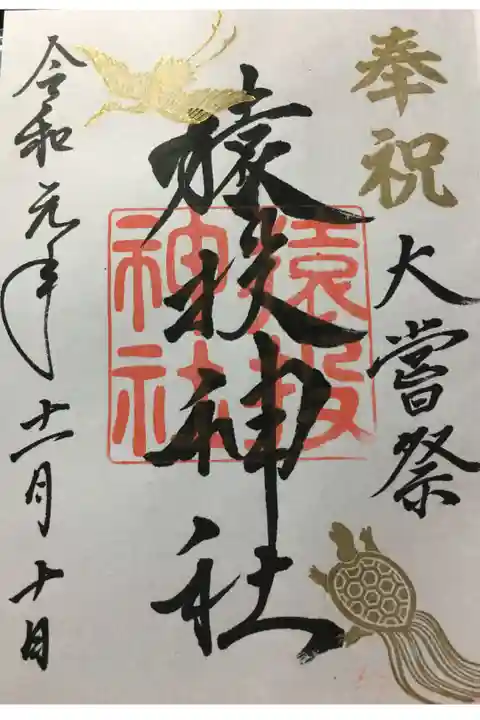 奉祝
大嘗祭
猿投神社
猿投
神社
令和元年十一月十日